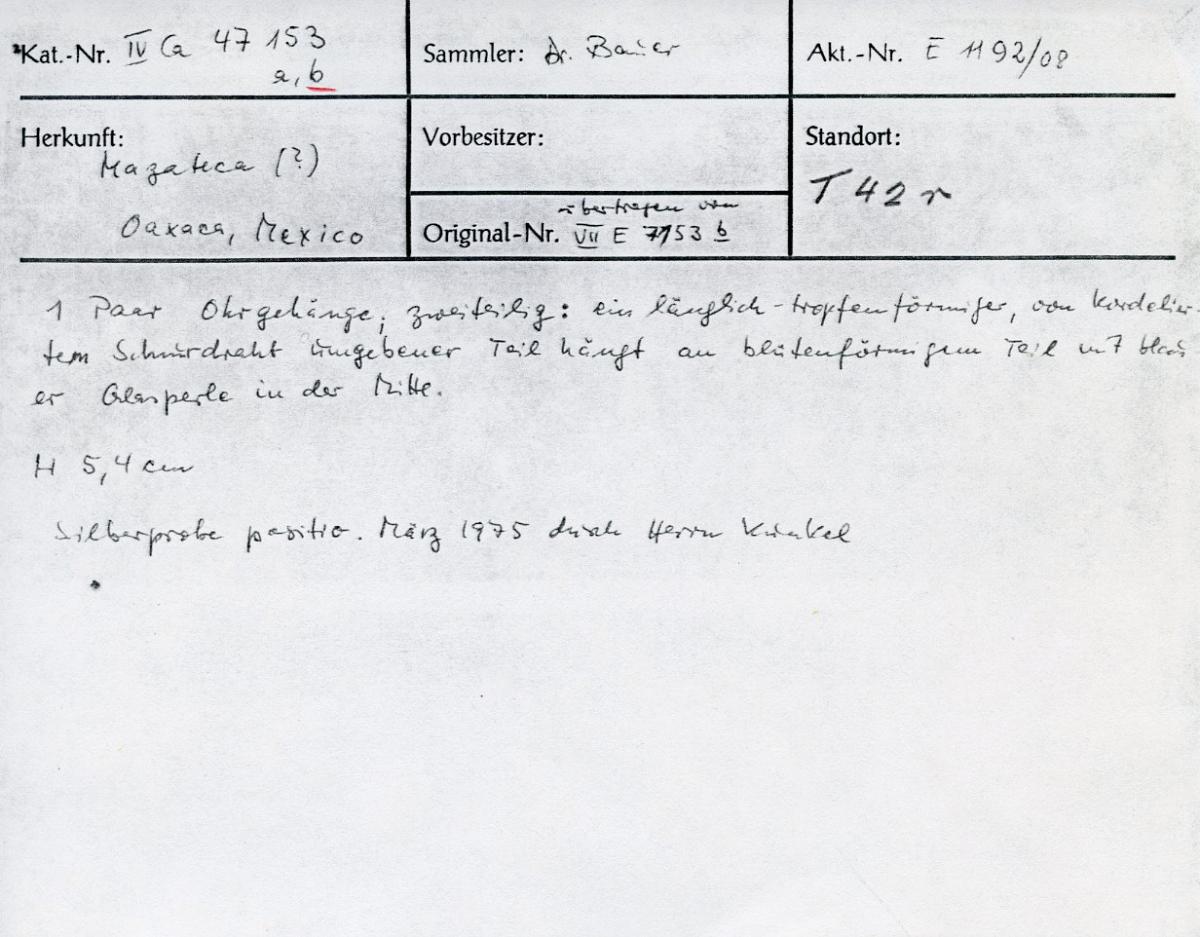 Kat.-Nr. IV Ca 47 153
a, b
Sammler: Dr. Bauer
Akt.-Nr. E 1192/08
Herkunft:
Mazateca (?)
Oaxaca, Mexico
Vorbesitzer:
übertragen von
Original-Nr. VII E 7153 b
Standort:
T 42 r
1 Paar Ohrgehänge; zweiteilig: ein länglich-tropfenförmiger, von kordelier-
tem Schnurdraht umgebener Teil hängt an blütenförmigem Teil mit blau
er Glasperle in der Mitte.
H 5,4 cm
Silberprobe positiv. März 1975 durch Herrn Kunkel